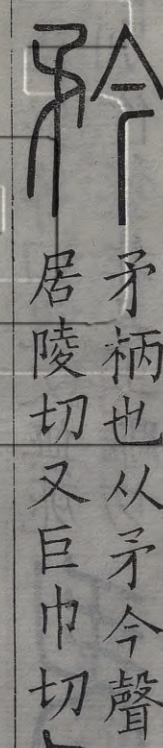 矜
矛柄也从矛今聲
居陵切又巨巾切